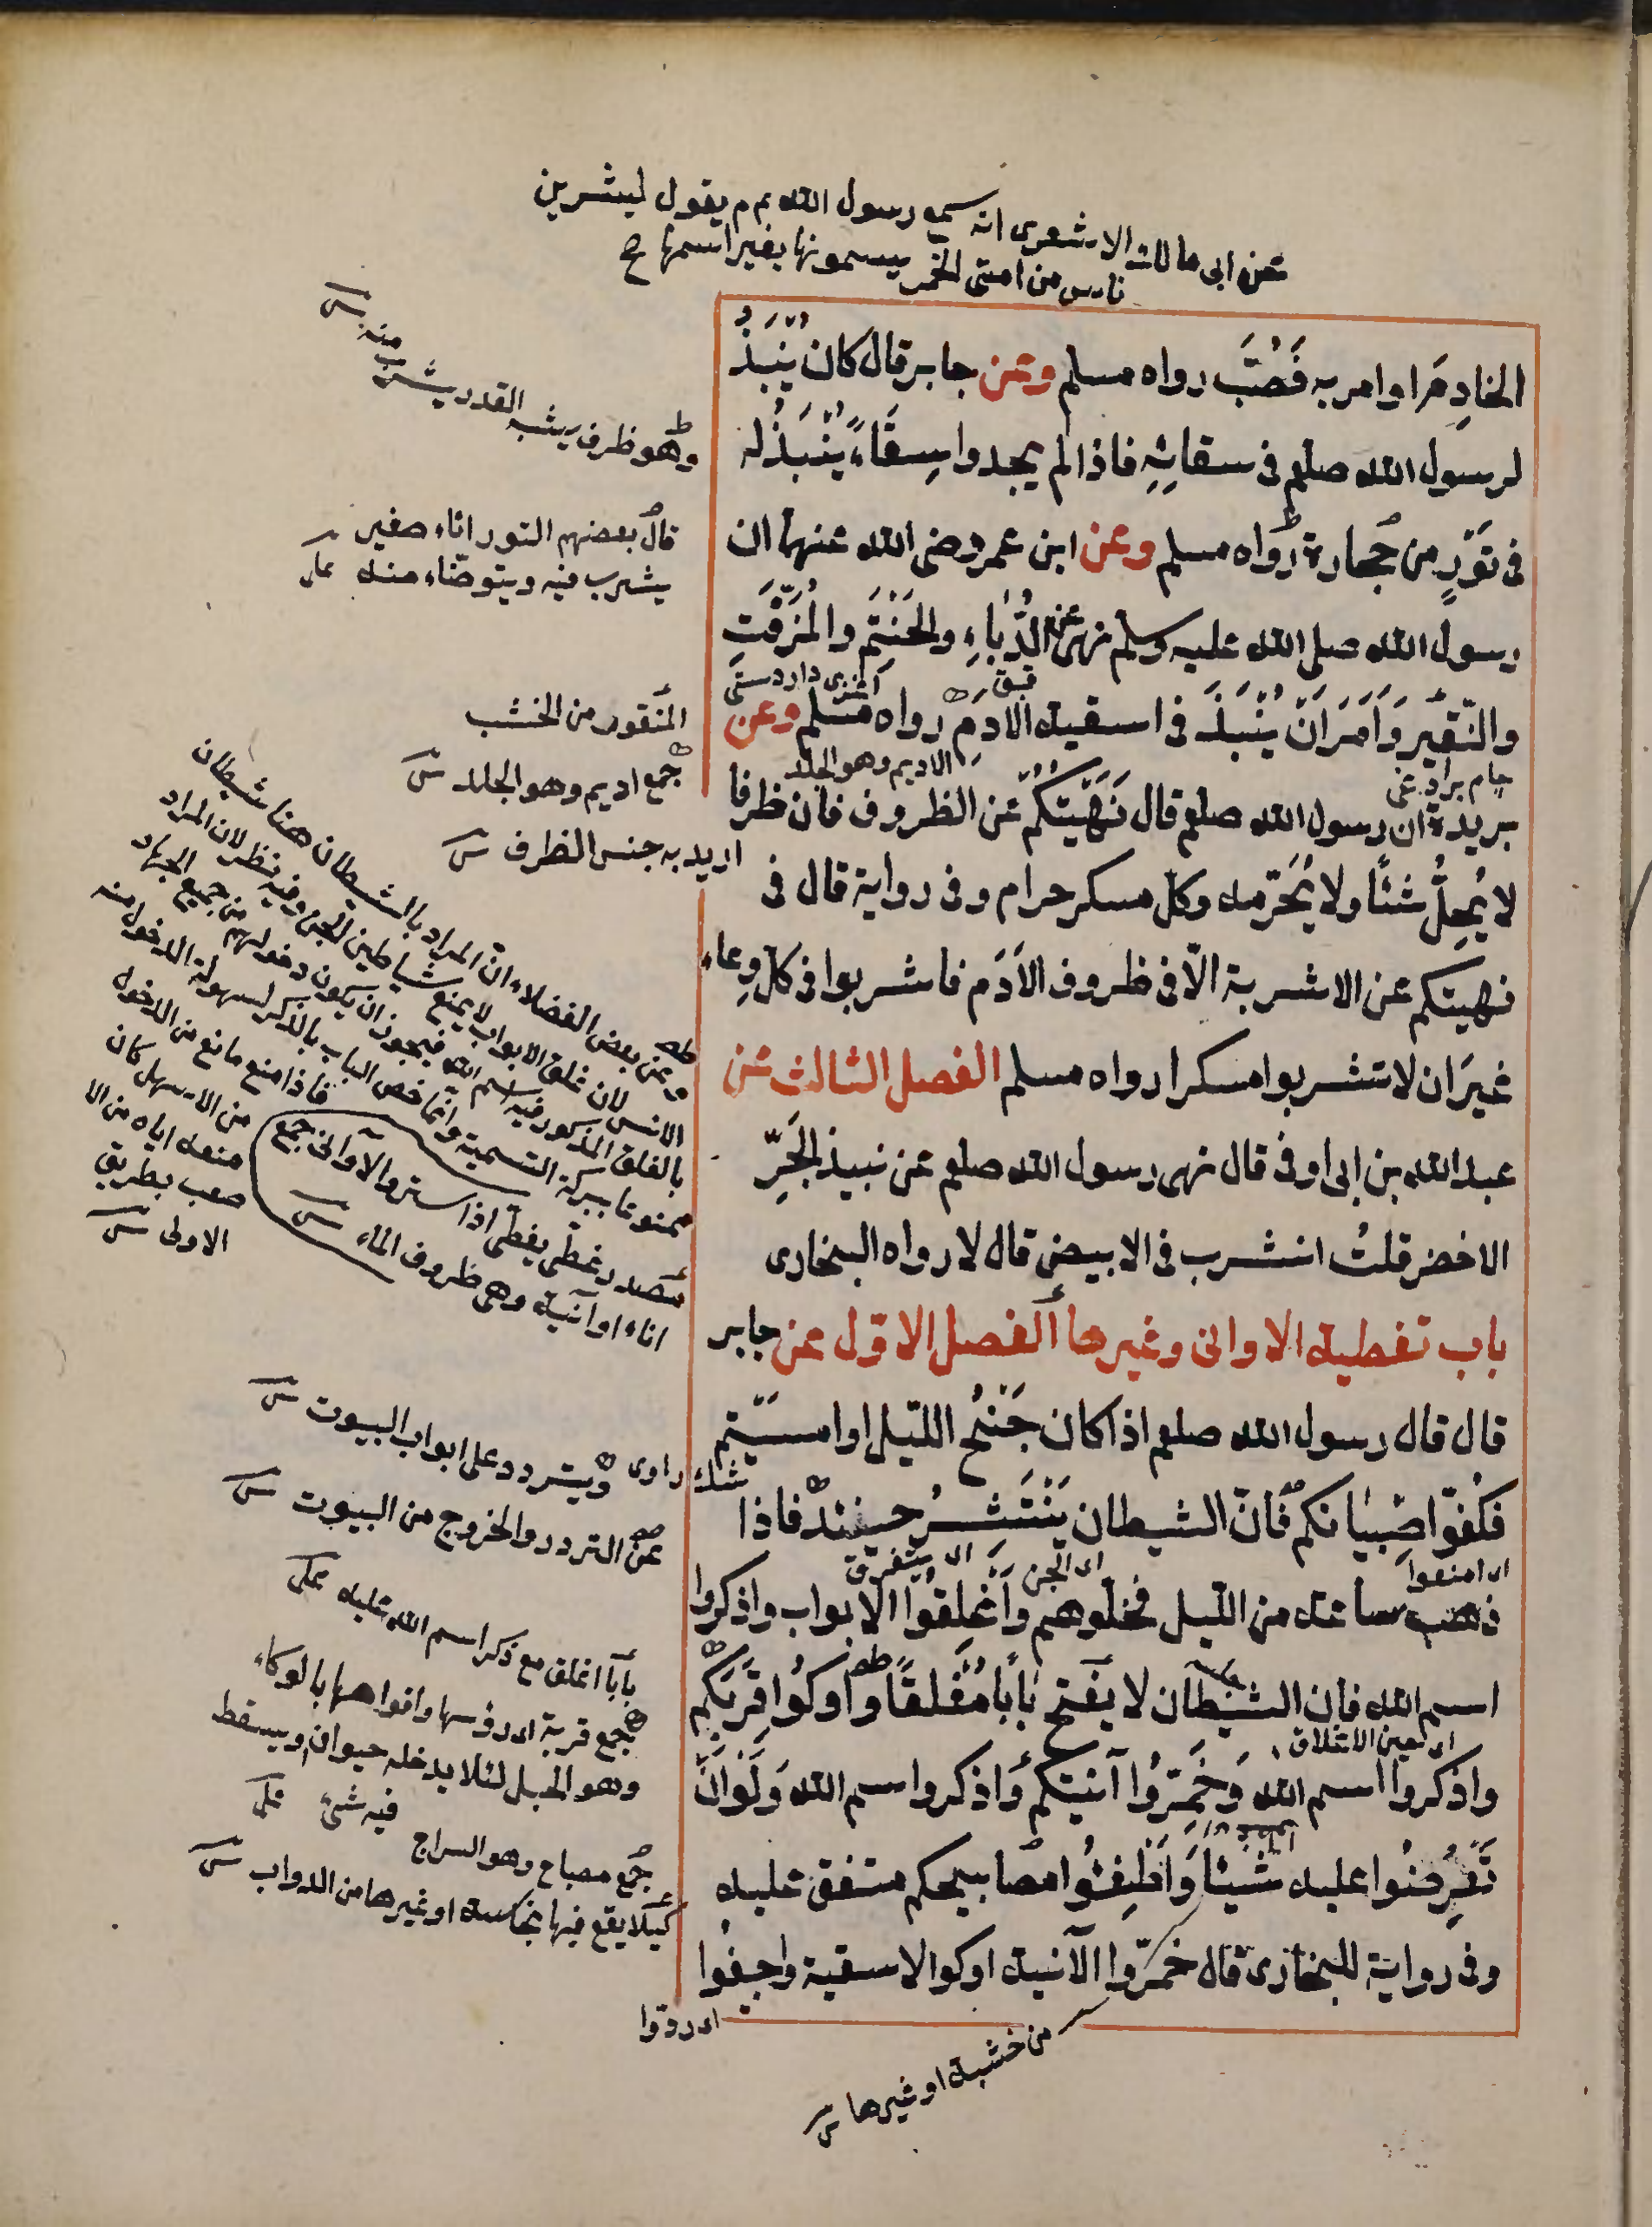 عن ابى مالك الاشعرى انه سمع رسول الله عم م يقول ليشربن
ناس من امتى الخمر يسمونها بغير اسمها ح
الخادِمَ او امر به فَصُبَّ رواه مسلم وعن جابر قال كان يُنْبَذُ
لرسول الله صلعم فى سقائِهِ فاذا لم يجدوا سِقَاءً يُنْبَذُ له
فى تَوْرٍ من حجارة رواه مسلم وعن ابن عمر رضى الله عنهما ان
رسول الله صلى الله عليه وسلم نهى عن الدُّبّاءِ والحَنْتَمِ والمُزَفَّتِ
والنّقيْر وَاَمَرَ اَنْ يُنْبَذَ فى اسقية الاَدَمِ رواه مسلم وعن
بريدة ان رسول الله صلعم قال نَهَيْتُكُمْ عن الظروف فان ظرفا
لا يُحِلُّ شئًا ولا يُحَرّمه وكل مسكر حرام وفى رواية قال فى
نهيتكم عن الاشربة الّا فى ظروف الاَدَم فاشربوا فى كل وِعاء
غيرَ ان لا تشربوا مسكرا رواه مسلم الفصل الثالث عن
عبد الله بن ابى اوفى قال نهى رسول الله صلعم عن نبيذ الجَرِّ
الاخضر قلتُ انشرب فى الابيض قال لا رواه البخارى
باب تغطية الاوانى وغيرها الفصل الاوّل عن جابر
قال قال رسول الله صلعم اذا كان جَنْحُ الليّل او امسيّتم
فكُفّوا صْبيانكم فَانّ الشيطان يَنْتَشِرُ حينئذ فاذا
ذهب ساعة من اللّيل فخلّوهم وَاَغْلِقُوا الابواب واذكروا
اسم الله فاِن الشيْطان لا يَفتح بٰابًا مُغْلقًا واَوكُوا قِرَبَكُم
واذكروا اسم الله وَخَمّرُوا آنيتكم وَاذكروا اسم الله وَلَوْ اَنْ
تَعْرِضُوا عليه شيْئًا وَاَطْفِئُوا مصابيحكم متفق عليه
وفى رواية للبخارى قال خَمّرُوا الآنية اوكوا الاسقية واجيفُوا
وهو ظرف يشبه القدر يشرب منه س
قال بعضهم التور اناء صغير
يشرب فيه ويتوضاء منه على
المنقور من الخشب
جمع اديم وهو الجلد س
اريد به جنس الظرف س
الاديم وهو الجلد
وعن بعض الفضلاء انّ المراد بالشيطان هنا شيطان
الانس لان غلق الابواب لا يمنع شياطين الجن وفيه نظر لان المراد
بالغلق المذكور فيه اسم الله فيجوز ان يكون دخولهم من جميع الجهاد
ممنوعا ببركة التسمية وانما خص الباب بالذكر لسهولة الدخول منه
فاذا منع مانع من الدخول
من الاسهل كان
منعه اياه من الا
صعب بطريق
الاولى س
مصدر غطى يغطى اذا ستر والآوانى جمع
اناء او آنية وهى ظروف الماء س
شك راوى
ويتردد على ابواب البيوت س
عن التردد والخروج من البيوت س
اى امنعوا
اى الجن
اى يتفرق
بابًا اغلق مع ذكر اسم الله عليه على
جمع قربة اى رؤسها وافواهها بالوكاء
وهو الحبل لئلا يدخله حيوان ويسقط
فيه شئ على
جمع مصباح وهو السراج
كيلا يقع فيها نجاسة او غيرها من الدواب س
اى ردوا
من خشبة او غيرها س